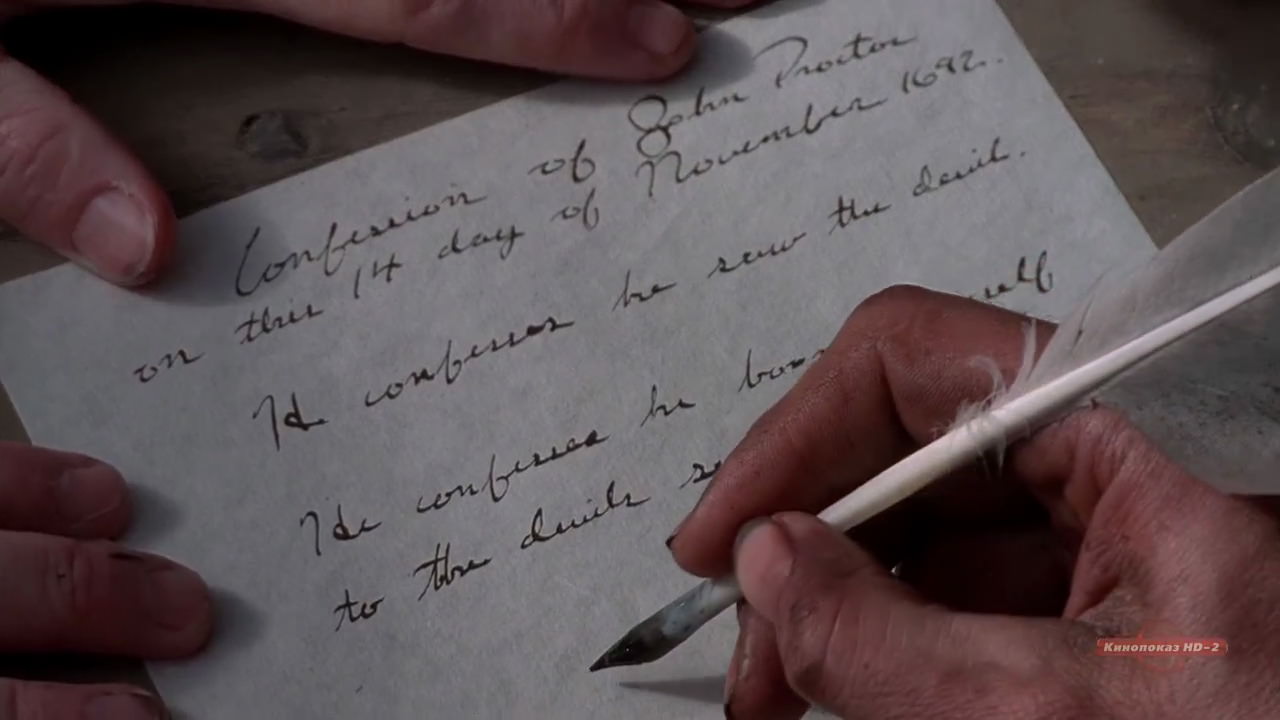 Confession of John Proctor
on this 14 day of November 1692.
He confesses he saw the devil.
He confesses he self
to the devils
Кинопоказ HD-2